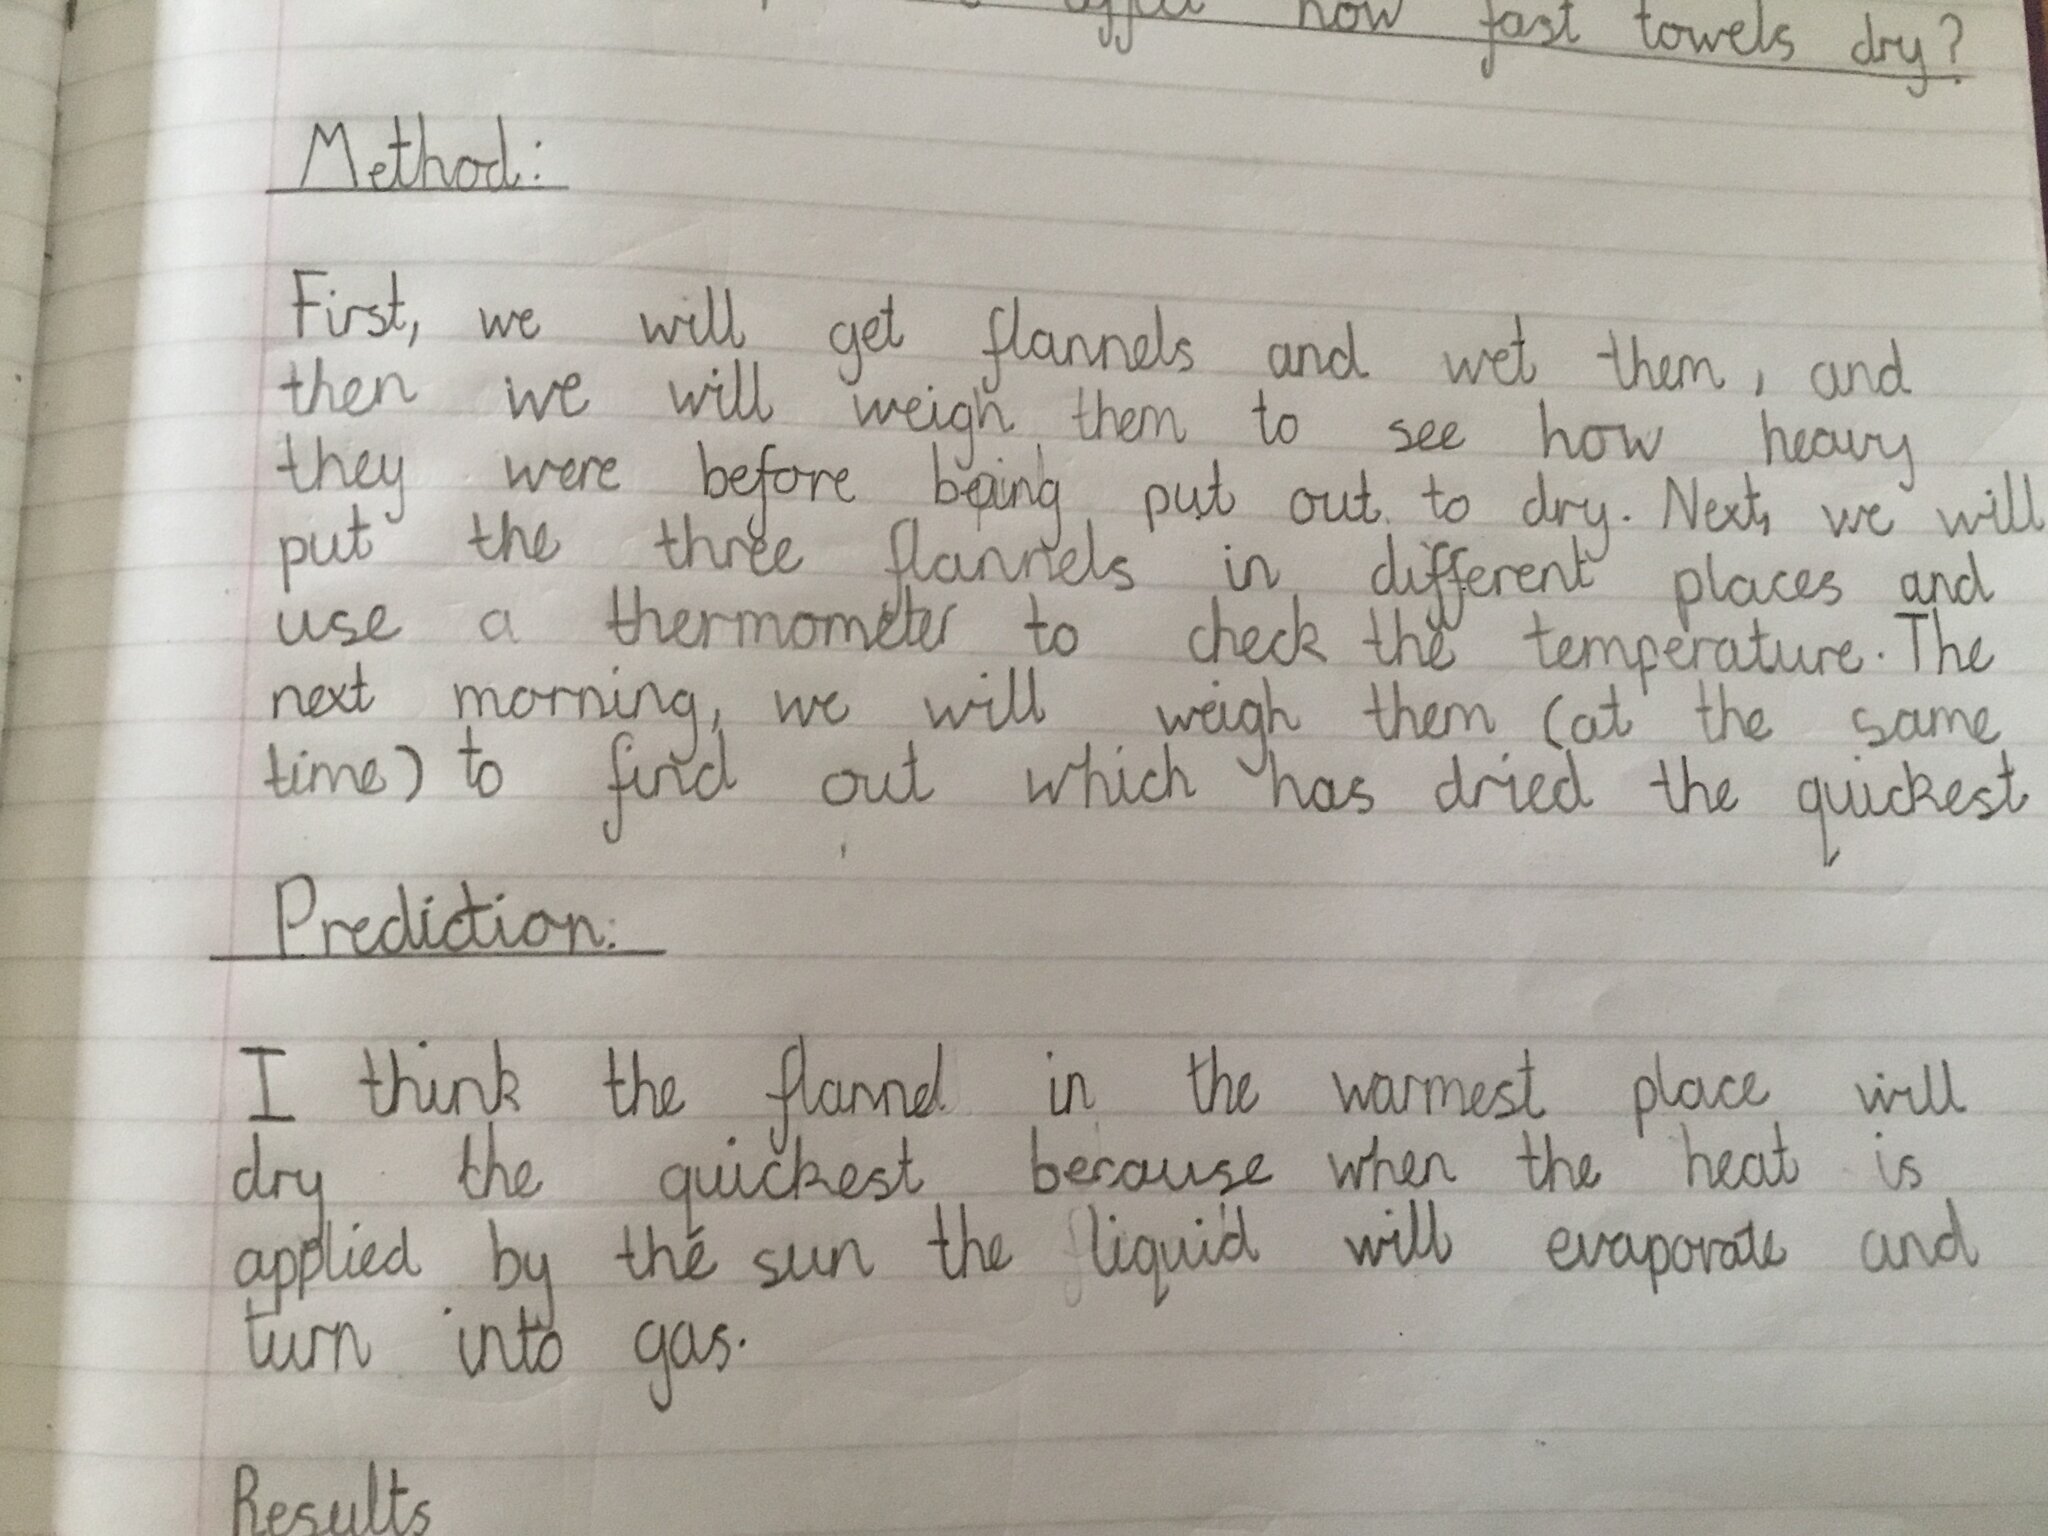 affect how fast towels dry?
Method:
First, we will get flannels and wet them, and
then we will weigh them to see how heavy
they were before being put out to dry. Next, we will
put the three flannels in different places and
use a thermometer to check the temperature. The
next morning, we will weigh them (at the same
time) to find out which has dried the quickest
Prediction:
I think the flannel in the warmest place will
dry the quickest because when the heat is
applied by the sun the liquid will evaporate and
turn into gas.
Results